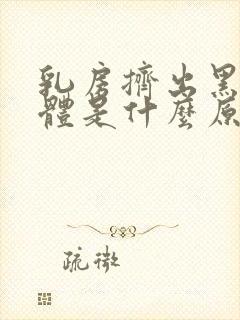 乳房擠出黑
體是什麼原
疏微